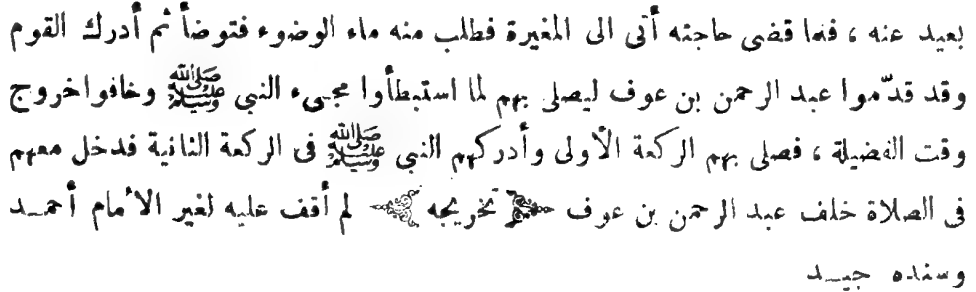 بعيد عنه ، فلما قضى حاجته أتى الى المغيرة فطلب منه ماء الوضوء فتوضأ ثم أدرك القوم
وقد قدّموا عبد الرحمن بن عوف ليصلى بهم لما استبطأوا مجىء النبي ﷺ وخافوا خروج
وقت الفضيلة ، فصلى بهم الركعة الأولى وأدركهم النبي ﷺ فى الركعة الثانية فدخل معهم
فى الصلاة خلف عبد الرحمن بن عوف ﴿ تخريجه ﴾ لم أقف عليه لغير الأمام أحمــد
وسنده جيــد